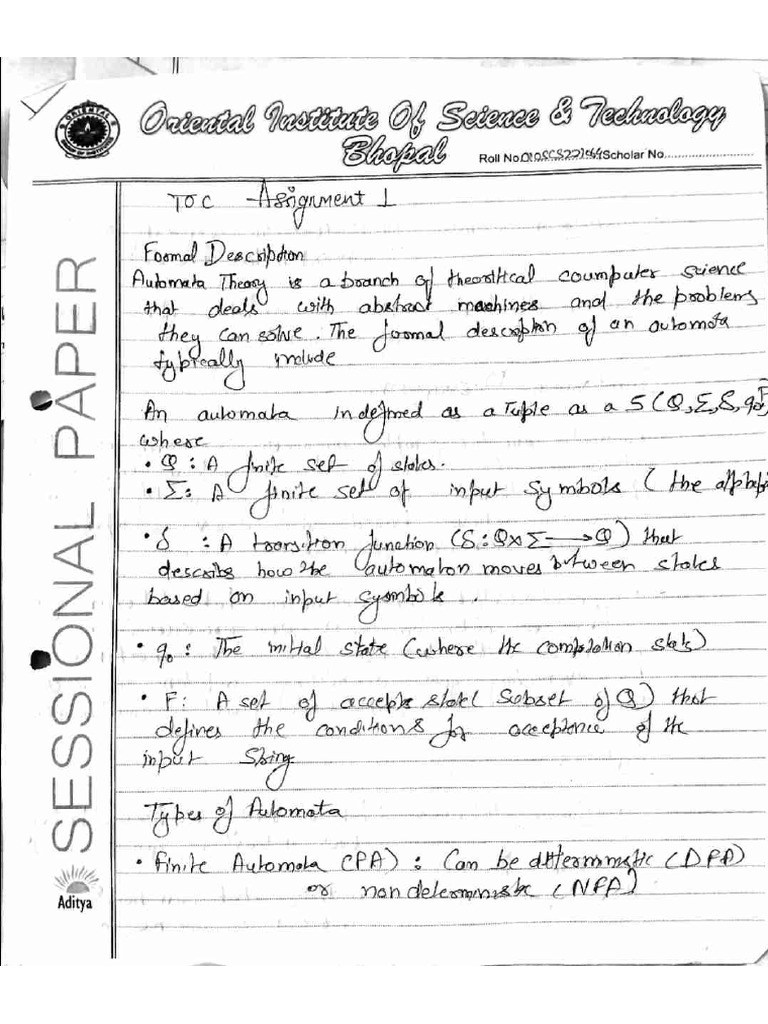 Oriental Institute Of Science & Technology
Bhopal
Roll No. Scholar No.
TOC - Assignment 1
Formal Description
Automata Theory is a branch of theoritical coumputer science
that deals with abstract machines and the problems
they can solve. The formal description of an automata
typically include
An automata in defined as a Tuple as a 5 (Q, Σ, δ, q0, F
where
• Q : A finite set of states.
• Σ : A finite set of input symbols ( the alphabet
• δ : A transition function (δ : Q x Σ → Q) that
describs how the automaton moves between states
based on input symbols .
• q0 : The initial state (where the computation stats)
• F : A set of accepts state( Subset of Q) that
defines the conditions for acceptance of the
input String
Types of Automata
• Finite Automata (FA) : Can be deterministic (DFA)
or non deterministic (NFA)
SESSIONAL PAPER
Aditya